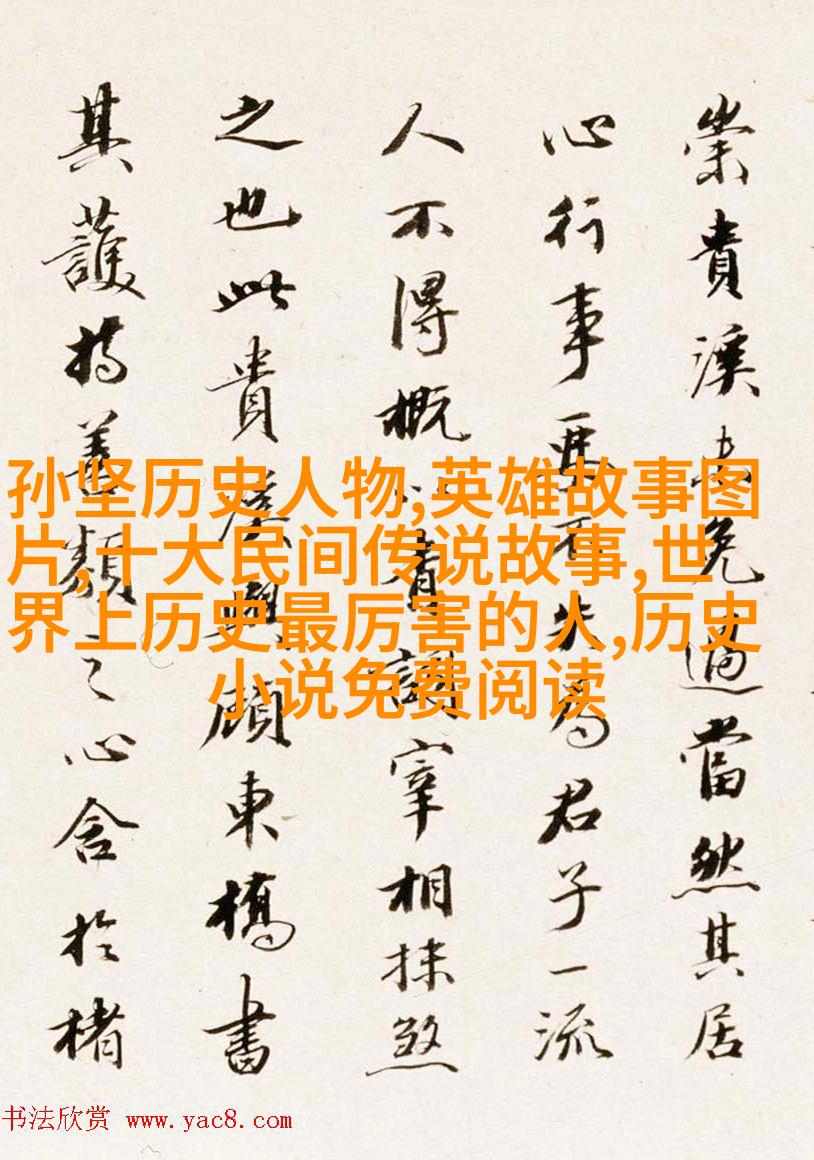 崇貴溪未免過當然其居
心行事要不失為君子一流
人不得概以青詞宰相抹煞
之也此貴溪與顧東橋書
其護持善類之心含於楮
孙坚历史人物,英雄故事图
片,十大民间传说故事,世
界上历史最厉害的人,历史
小说免费阅读
书法欣赏 www.yac8.com